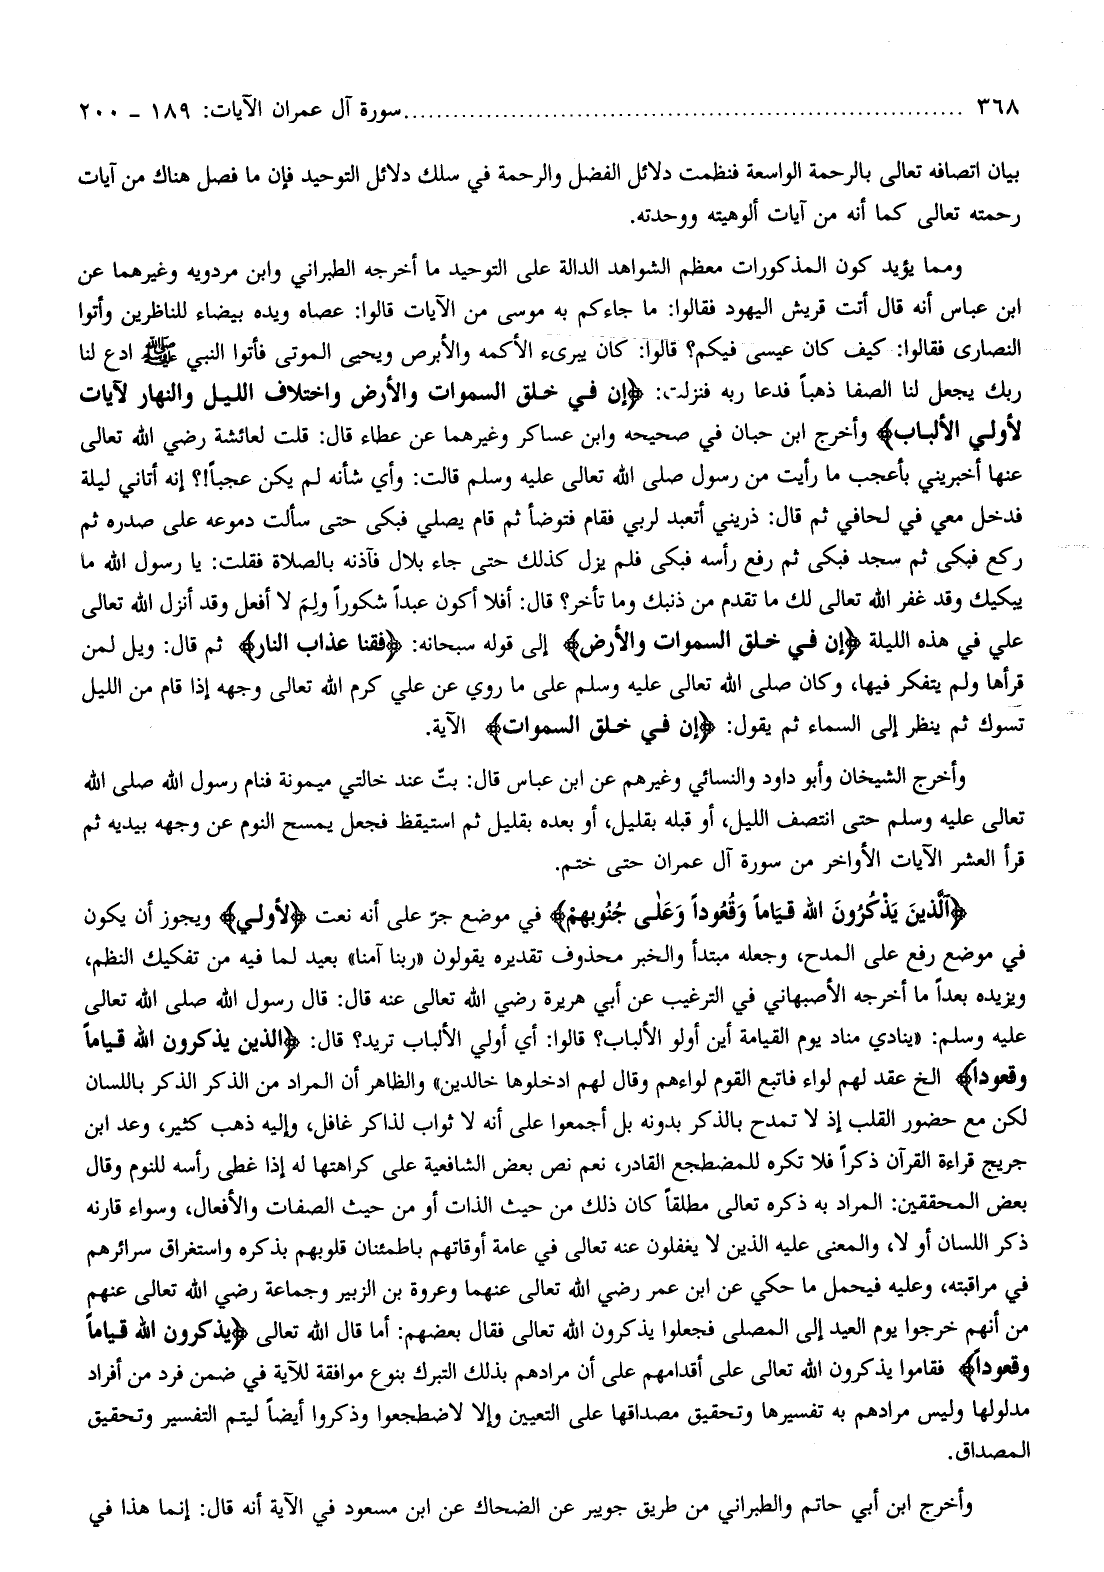 ٣٦٨ ........................................................................ سورة آل عمران الآيات: ١٨٩ ـ ٢٠٠
بيان اتصافه تعالى بالرحمة الواسعة فنظمت دلائل الفضل والرحمة في سلك دلائل التوحيد فإن ما فصل هناك من آيات
رحمته تعالى كما أنه من آيات ألوهيته ووحدته.
ومما يؤيد كون المذكورات معظم الشواهد الدالة على التوحيد ما أخرجه الطبراني وابن مردويه وغيرهما عن
ابن عباس أنه قال أتت قريش اليهود فقالوا: ما جاءكم به موسى من الآيات قالوا: عصاه ويده بيضاء للناظرين وأتوا
النصارى فقالوا: كيف كان عيسى فيكم؟ قالوا: كان يبرىء الأكمه والأبرص ويحيى الموتى فأتوا النبي ﷺ ادع لنا
ربك يجعل لنا الصفا ذهباً فدعا ربه فنزلت: ﴿إن في خلق السموات والأرض واختلاف الليل والنهار لآيات
لأولي الألباب﴾ وأخرج ابن حبان في صحيحه وابن عساكر وغيرهما عن عطاء قال: قلت لعائشة رضي الله تعالى
عنها أخبريني بأعجب ما رأيت من رسول صلى الله تعالى عليه وسلم قالت: وأي شأنه لم يكن عجباً!؟ إنه أتاني ليلة
فدخل معي في لحافي ثم قال: ذريني أتعبد لربي فقام فتوضأ ثم قام يصلي فبكى حتى سألت دموعه على صدره ثم
ركع فبكى ثم سجد فبكى ثم رفع رأسه فبكى فلم يزل كذلك حتى جاء بلال فآذنه بالصلاة فقلت: يا رسول الله ما
يبكيك وقد غفر الله تعالى لك ما تقدم من ذنبك وما تأخر؟ قال: أفلا أكون عبداً شكوراً ولِمَ لا أفعل وقد أنزل الله تعالى
علي في هذه الليلة ﴿إن في خلق السموات والأرض﴾ إلى قوله سبحانه: ﴿فقنا عذاب النار﴾ ثم قال: ويل لمن
قرأها ولم يتفكر فيها، وكان صلى الله تعالى عليه وسلم على ما روي عن علي كرم الله تعالى وجهه إذا قام من الليل
تسوك ثم ينظر إلى السماء ثم يقول: ﴿إن في خلق السموات﴾ الآية.
وأخرج الشيخان وأبو داود والنسائي وغيرهم عن ابن عباس قال: بتّ عند خالتي ميمونة فنام رسول الله صلى الله
تعالى عليه وسلم حتى انتصف الليل، أو قبله بقليل، أو بعده بقليل ثم استيقظ فجعل يمسح النوم عن وجهه بيديه ثم
قرأ العشر الآيات الأواخر من سورة آل عمران حتى ختم.
﴿اَلَّذينَ يَذْكُرُونَ الله قيَاماً وَقُعُوداً وَعَلَى جُنُوبهِمْ﴾ في موضع جرّ على أنه نعت ﴿لأولي﴾ ويجوز أن يكون
في موضع رفع على المدح، وجعله مبتدأ والخبر محذوف تقديره يقولون «ربنا آمنا» بعيد لما فيه من تفكيك النظم،
ويزيده بعداً ما أخرجه الأصبهاني في الترغيب عن أبي هريرة رضي الله تعالى عنه قال: قال رسول الله صلى الله تعالى
عليه وسلم: «ينادي مناد يوم القيامة أين أولو الألباب؟ قالوا: أي أولي الألباب تريد؟ قال: ﴿الذين يذكرون الله قياماً
وقعوداً﴾ الخ عقد لهم لواء فاتبع القوم لواءهم وقال لهم ادخلوها خالدين» والظاهر أن المراد من الذكر الذكر باللسان
لكن مع حضور القلب إذ لا تمدح بالذكر بدونه بل أجمعوا على أنه لا ثواب لذاكر غافل، وإليه ذهب كثير، وعد ابن
جريج قراءة القرآن ذكراً فلا تكره للمضطجع القادر، نعم نص بعض الشافعية على كراهتها له إذا غطى رأسه للنوم وقال
بعض المحققين: المراد به ذكره تعالى مطلقاً كان ذلك من حيث الذات أو من حيث الصفات والأفعال، وسواء قارنه
ذكر اللسان أو لا، والمعنى عليه الذين لا يغفلون عنه تعالى في عامة أوقاتهم باطمئنان قلوبهم بذكره واستغراق سرائرهم
في مراقبته، وعليه فيحمل ما حكي عن ابن عمر رضي الله تعالى عنهما وعروة بن الزبير وجماعة رضي الله تعالى عنهم
من أنهم خرجوا يوم العيد إلى المصلى فجعلوا يذكرون الله تعالى فقال بعضهم: أما قال الله تعالى ﴿يذكرون الله قياماً
وقعوداً﴾ فقاموا يذكرون الله تعالى على أقدامهم على أن مرادهم بذلك التبرك بنوع موافقة للآية في ضمن فرد من أفراد
مدلولها وليس مرادهم به تفسيرها وتحقيق مصداقها على التعيين وإلا لاضطجعوا وذكروا أيضاً ليتم التفسير وتحقيق
المصداق.
وأخرج ابن أبي حاتم والطبراني من طريق جويبر عن الضحاك عن ابن مسعود في الآية أنه قال: إنما هذا في